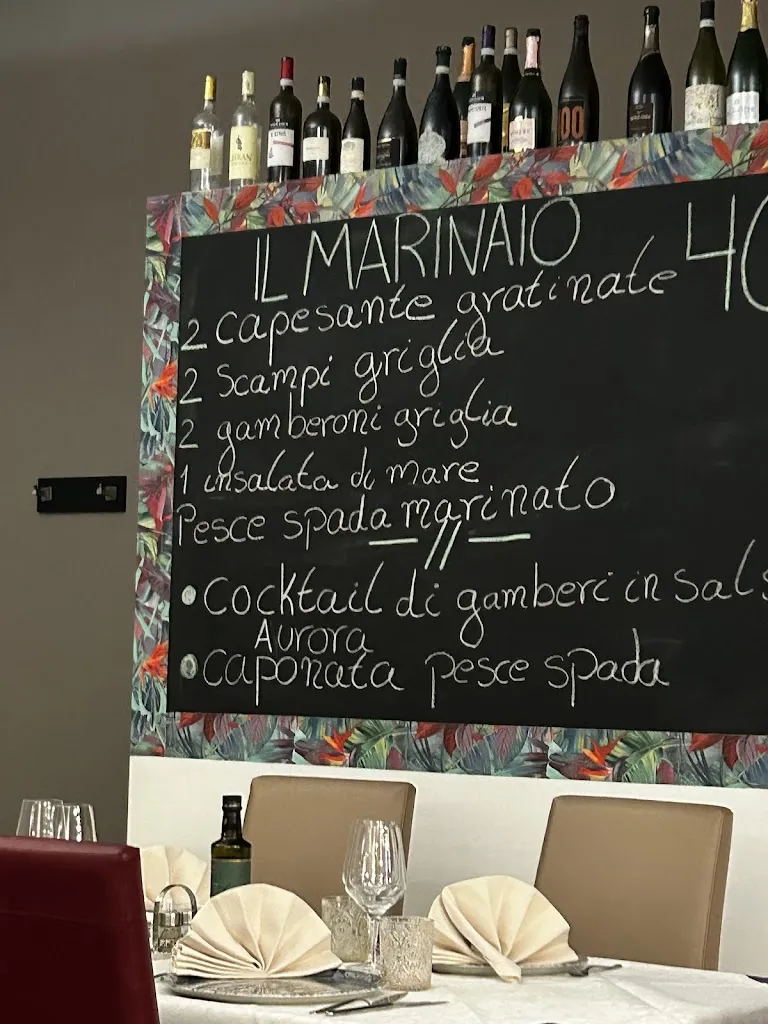 IL MARINAIO 40
2 capesante gratinate
2 Scampi griglia
2 gamberoni griglia
1 insalata di mare
Pesce spada marinato
Cocktail di gamberi in
Aurora
caponata pesce spada
00